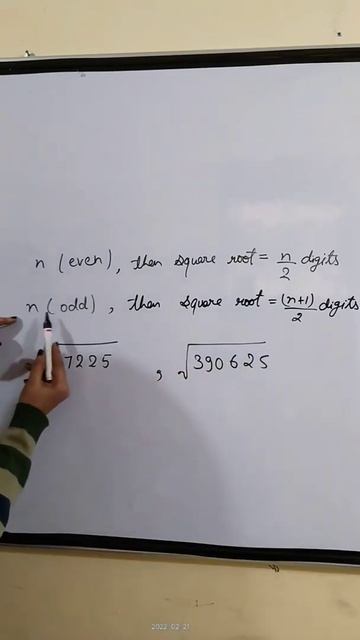 n (even), then square root = n/2 digits
n (odd), then square root = (n+1)/2 digits
7225 , √390625
2022 02 21